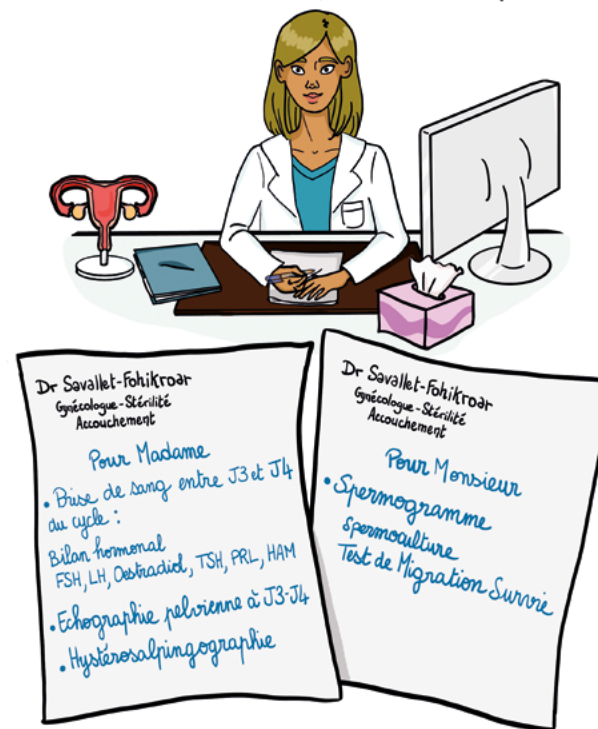 Dr Savallet-Fohikroar
Gynécologue-Stérilité
Accouchement
Pour Madame
• Prise de sang entre J3 et J4
du cycle :
Bilan hormonal
FSH, LH, Oestradiol, TSH, PRL, HAM
• Echographie pelvienne à J3-J4
• Hystérosalpingographie
Dr Savallet-Fohikroar
Gynécologue-Stérilité
Accouchement
Pour Monsieur
• Spermogramme
spermoculture
Test de Migration Survie